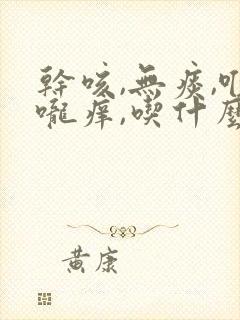 幹咳,無痰,
嚨痒,喫什麼
黃康